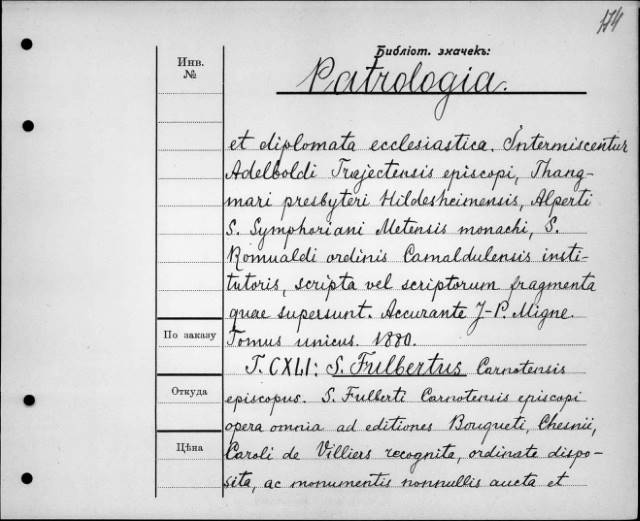 174
Библіот. значекъ:
Инв.
№
Patrologia.
et diplomata ecclesiastica. Intermiscentur
Adelboldi Trajectensis episcopi, Thang-
mari presbyteri Hildesheimensis, Alperti
S. Symphoriani Metensis monachi, S.
Romualdi ordinis Camaldulensis insti-
tutoris, scripta vel scriptorum fragmenta
quae supersunt. Accurante J-P. Migne.
По заказу
Tomus unicus. 1880.
T. CXLI: S. Fulbertus Carnotensis
Откуда
episcopus. S. Fulberti Carnotensis episcopi
opera omnia ad editiones Bouqueti, Chesnii,
Цѣна
Caroli de Villiers recognita, ordinate dispo-
sita, ac monumentis nonnullis aucta et